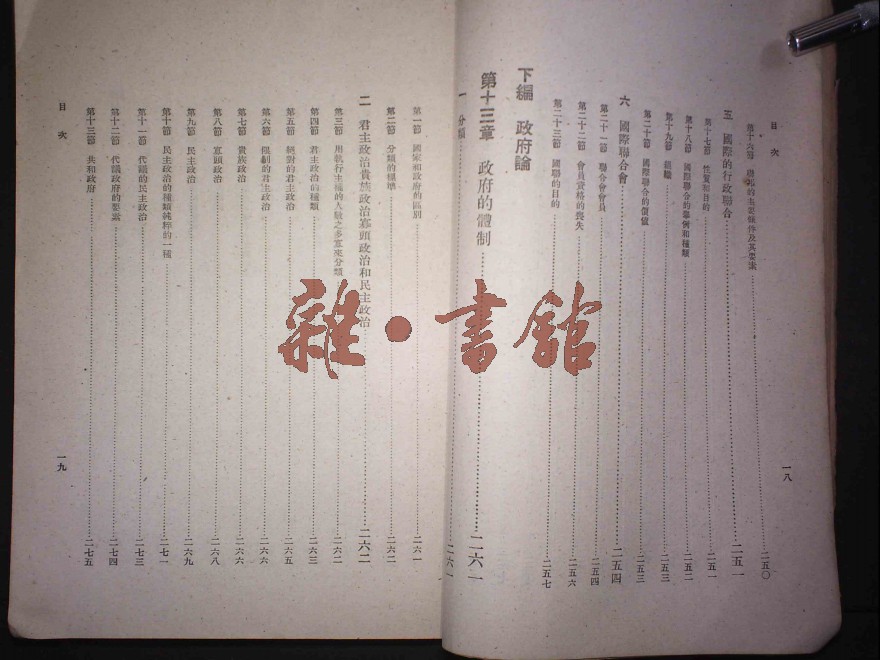 目次
第十六節 聯邦的主要條件及其要素 二五〇
五 國際的行政聯合 二五一
第十七節 性質和目的 二五一
第十八節 國際聯合的舉例和種類 二五二
第十九節 組織 二五三
第二十節 國際聯合的價值 二五三
六 國際聯合會 二五四
第二十一節 聯合會會員 二五四
第二十二節 會員資格的喪失 二五六
第二十三節 國聯的目的 二五七
下編 政府論
第十三章 政府的體制 二六一
一 分類 二六一
一八
第一節 國家和政府的區別 二六一
第二節 分類的標準 二六二
二 君主政治貴族政治寡頭政治和民主政治 二六二
第三節 用執行主權的人數之多寡來分類 二六二
第四節 君主政治的種類 二六三
第五節 絕對的君主政治 二六五
第六節 限制的君主政治 二六六
第七節 貴族政治 二六六
第八節 寡頭政治 二六八
第九節 民主政治 二六九
第十節 民主政治的種類純粹的一種 二七一
第十一節 代議的民主政治 二七三
第十二節 代議政府的要素 二七四
第十三節 共和政府 二七五
目次
一九
雜·書館